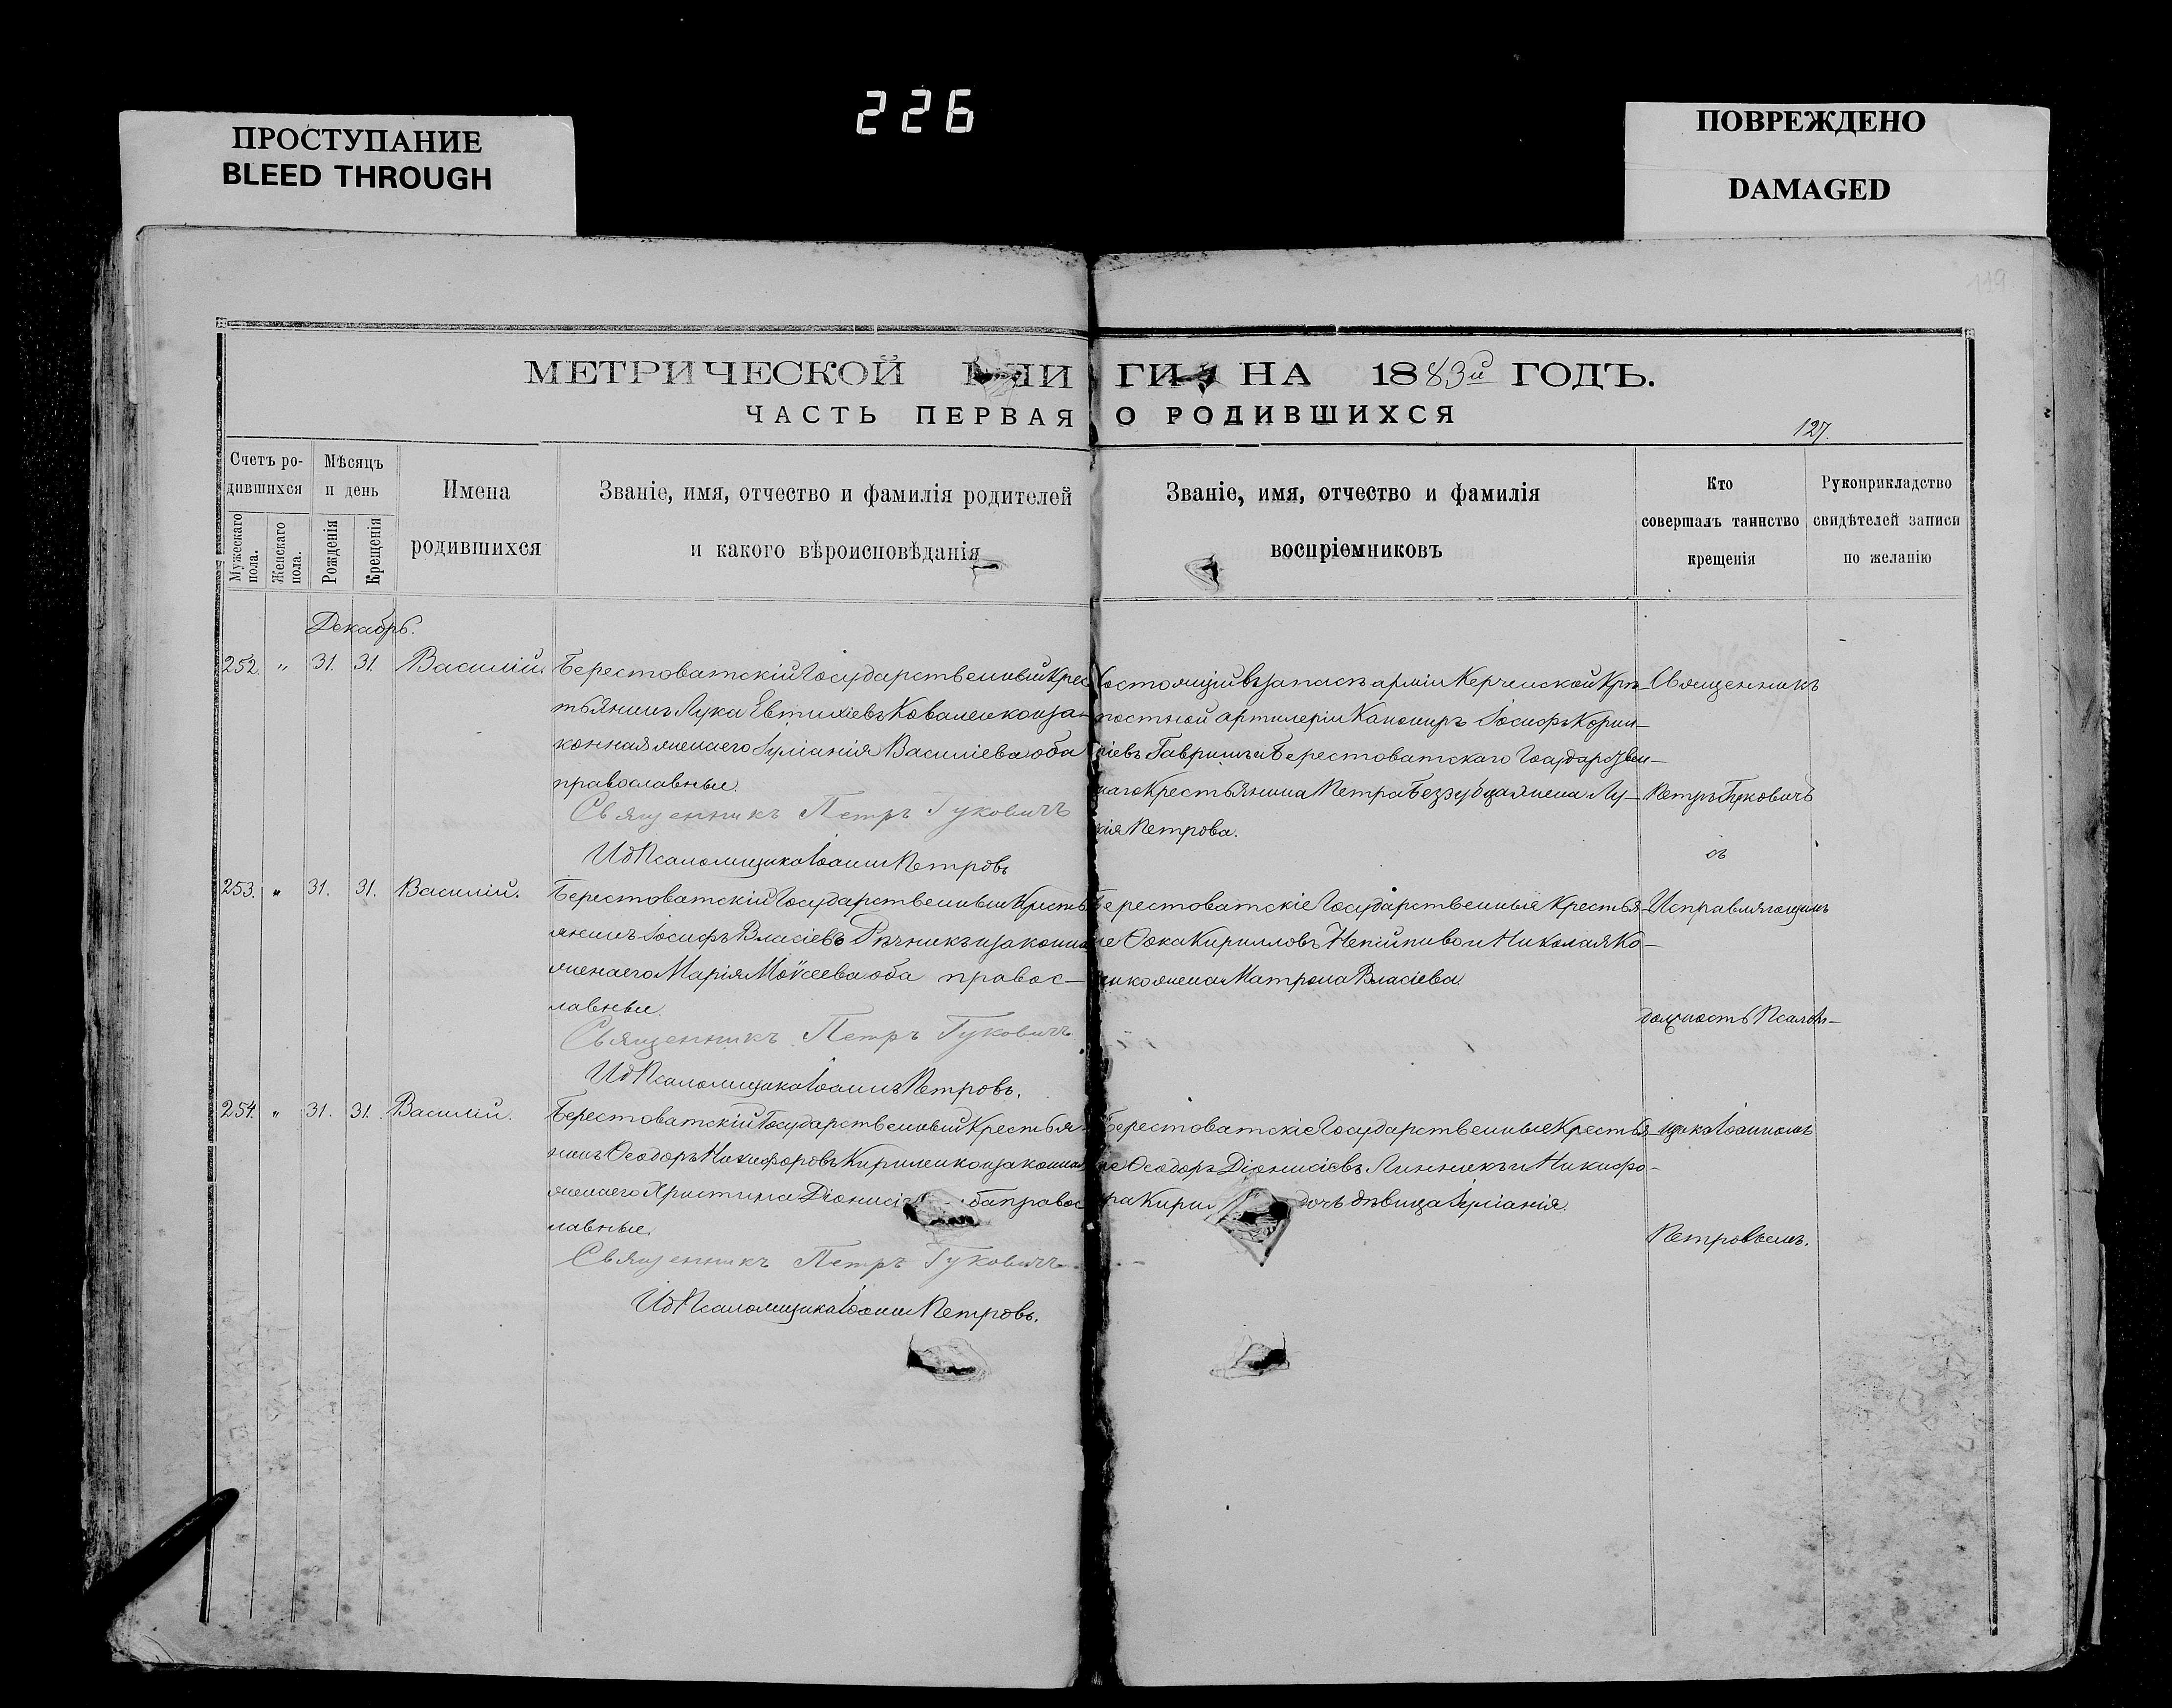 226
ПРОСТУПАНИЕ
BLEED THROUGH
ПОВРЕЖДЕНО
DAMAGED
119
МЕТРИЧЕСКОЙ КНИГИ НА 1883й ГОДЪ.
ЧАСТЬ ПЕРВАЯ О РОДИВШИХСЯ
127.
Счетъ ро-
дившихся
Мужескаго пола.
Женскаго пола.
Мѣсяцъ
и день
Рожденія
Крещенія
Имена
родившихся
Званіе, имя, отчество и фамилія родителей
и какого вѣроисповѣданія
Званіе, имя, отчество и фамилія
воспріемниковъ
Кто
совершалъ таинство
крещенія
Рукоприкладство
свидѣтелей записи
по желанію
Декабрь.
252. " 31. 31. Василій.
Берестоватскій Государственный Крес
тьянинъ Лука Евтихіевъ Коваленко и за-
конная жена его Іуліанія Василіева оба
православные.
Священникъ Петръ Гуковичъ
И д Псаломщика Іоаннъ Петровъ
Состоящій въ запасѣ арміи Керченской Крѣ-
постной артилеріи Канониръ Іосифъ Корни-
ліевъ Гавришъ и Берестоватскаго Государствен-
наго Крестьянина Петра Беззубца жена Лу-
кія Петрова.
253. " 31. 31. Василій.
Берестоватскій Государственный Кресть
янинъ Іосифъ Власіевъ Рѣчникъ и законна
жена его Марія Моѵсеева оба правос-
лавные.
Священникъ Петръ Гуковичъ
И д Псаломщика Іоаннъ Петровъ.
Берестоватскіе Государственные Крестья-
не Ѳока Кирилловъ Непійпиво и Николая Ко-
жена Матрона Власіева.
254. " 31. 31. Василій.
Берестоватскій Государственный Крестья-
нинъ Ѳеодоръ Никифоровъ Кириленко и законна
жена его Христина Діонисі ба правос
лавные.
Священникъ Петръ Гуковичъ
И д Псаломщика Іоаннъ Петровъ.
Берестоватскіе Государственные Крестья-
не Ѳеодоръ Діонисіевъ Линникъ и Никифо-
ра Кирил дочь дѣвица Іуліанія.
Священникъ
Петръ Гуковичъ
съ
Исправляющимъ
должность Псалом-
щика Іоанномъ
Петровымъ.